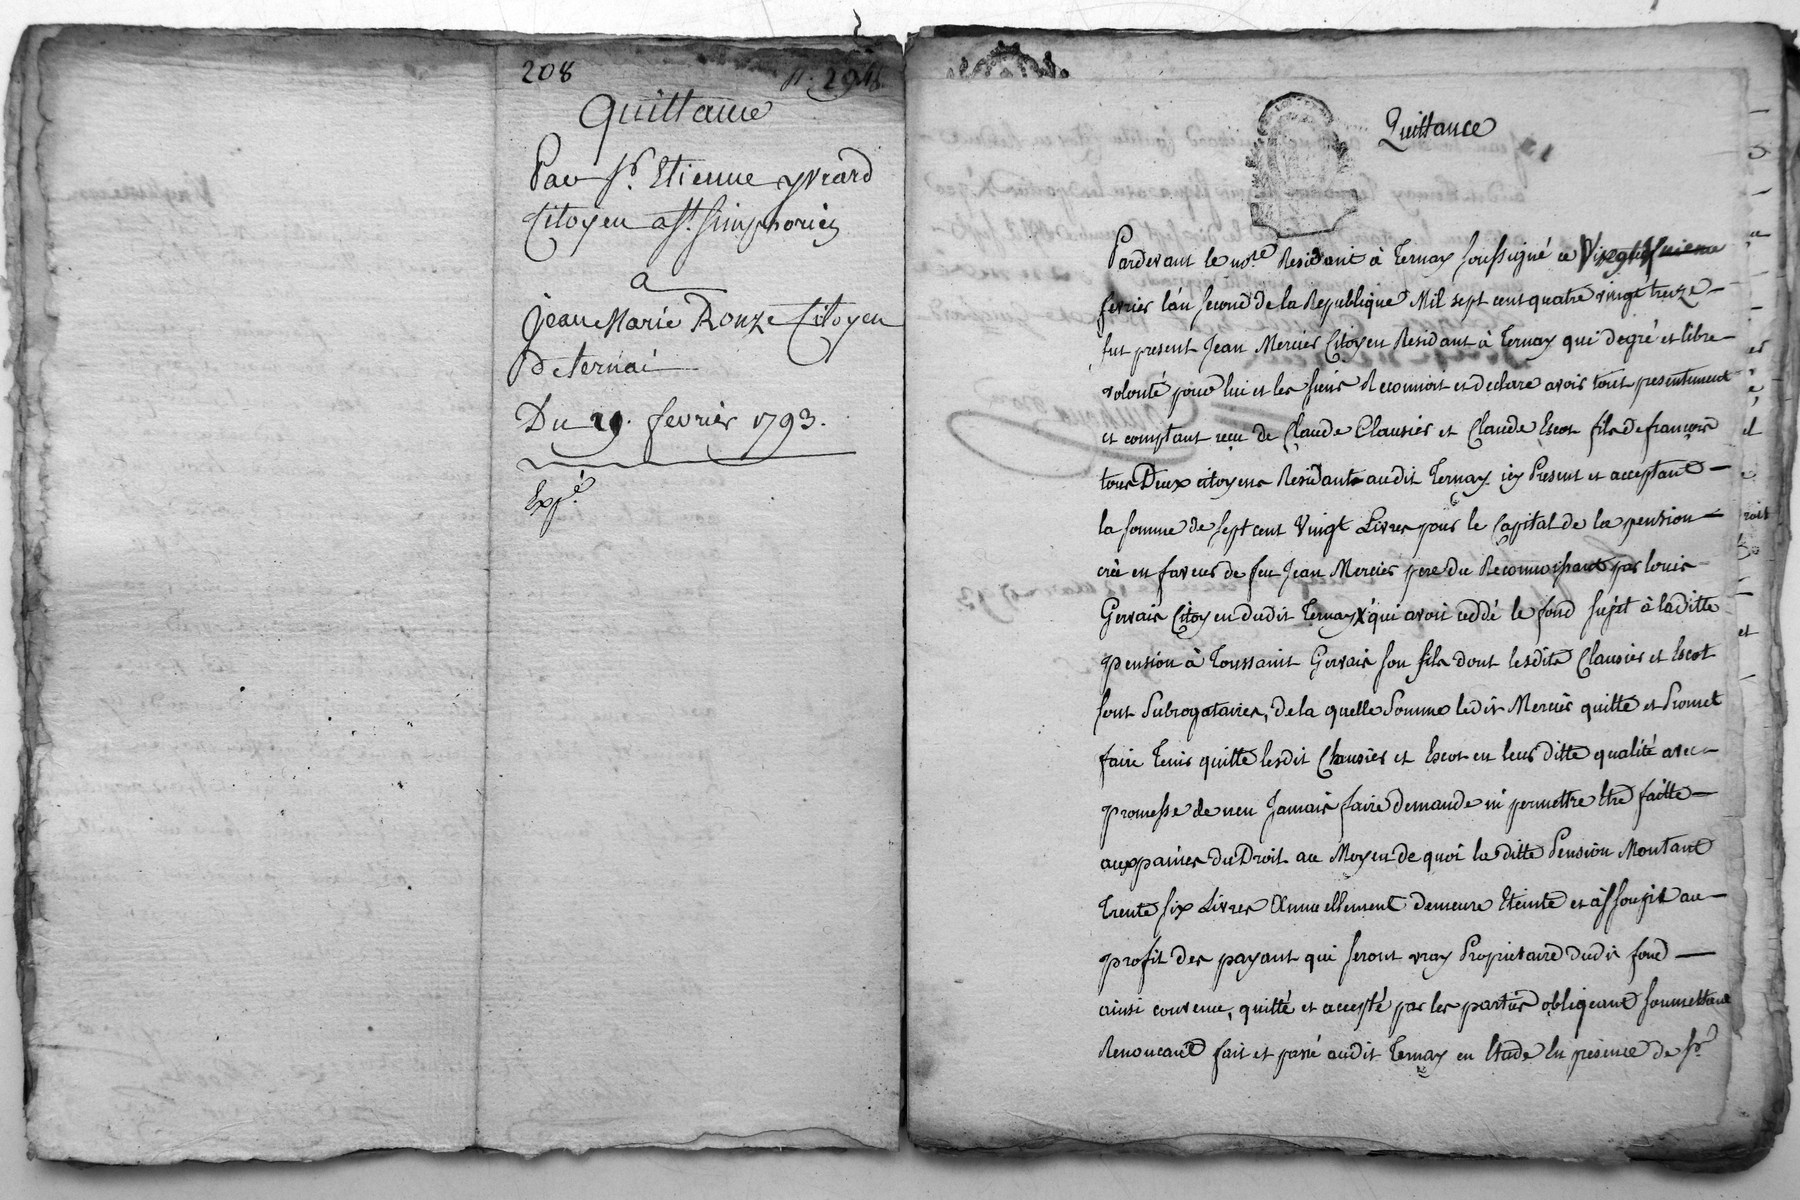 208
Quittance
Par Sr. Etienne yvrard
Citoyen a St. Simphorien
a
Jean Marie Ronze Citoyen
De ternai
Du 29. fevrier 1793.
Expé.
Quittance
Pardevant le nore. Residant à Ternay soussigné ce
fevrier l'an second de la Republique Mil sept cent quatre vingt treize
fut present Jean Mercier Citoyen Residant à Ternay qui degré et libre
volonté pour lui et les siens Reconnoit et declare avoir tout presentement
et comptant reçu de Claude Clausier et Claude Escot fils de françois
tous Deux citoyens Residants audit Ternay icy Present et acceptant
la somme de sept cent Vingt Livres pour le Capital de la pension
creé en faveur de feu Jean Mercier pere du Reconnoissant par louis
Gervais Citoyen dudit Ternay qui avoit ceddé le fond sujet à laditte
pension à Toussaint Gervais son fils dont lesdits Clausier et Escot
sont Subrogataires, de la quelle Somme ledit Mercier quitte et Promet
faire Tenir quitte lesdit Clausier et Escot en leur ditte qualité avec
promesse de n'en Jamais faire demande ni permettre Etre faitte
aux paines du Droit au Moyen de quoi la ditte Pension Montant
Trente six Livres Annuellement demeure Eteinte et assoupit au
profit des payant qui seront vray Proprietaire dudit fond
ainsi convenu, quitté et accepté par les parties obligeant soumettant
Renoncant fait et passé audit Ternay en Etude En presence de Sr.